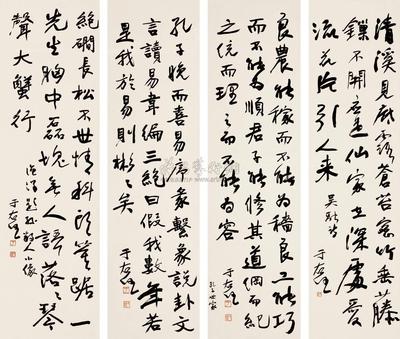 清溪見底露蒼苔密竹垂藤
鏁不開應是仙家在深處愛
流花片引人来
吳融詩
于右任
良農能稼而不能為穡良工能巧
而不能為順君子能修其道綱而紀
之統而理之而不能為容
于右任
孔子世家
孔子晚而喜易序彖繫象說卦文
言讀易韋編三絕曰假我數年若
是我於易則彬彬矣
于右任
絕磵長松不世情科頭箕踞一
先生胸中磊塊無人語落落琴
聲大蟹行
小像
于右任